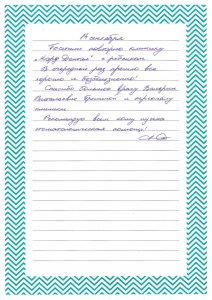 14 сентября
Посетили повторно клинику
"Кафф Дентал" с ребенком.
В очередной раз прошло все
хорошо и безболезненно!
Спасибо большое врачу Валерии
Витальевне и персоналу
клиники.
Рекомендую всем кому нужна
стоматологическая помощь!